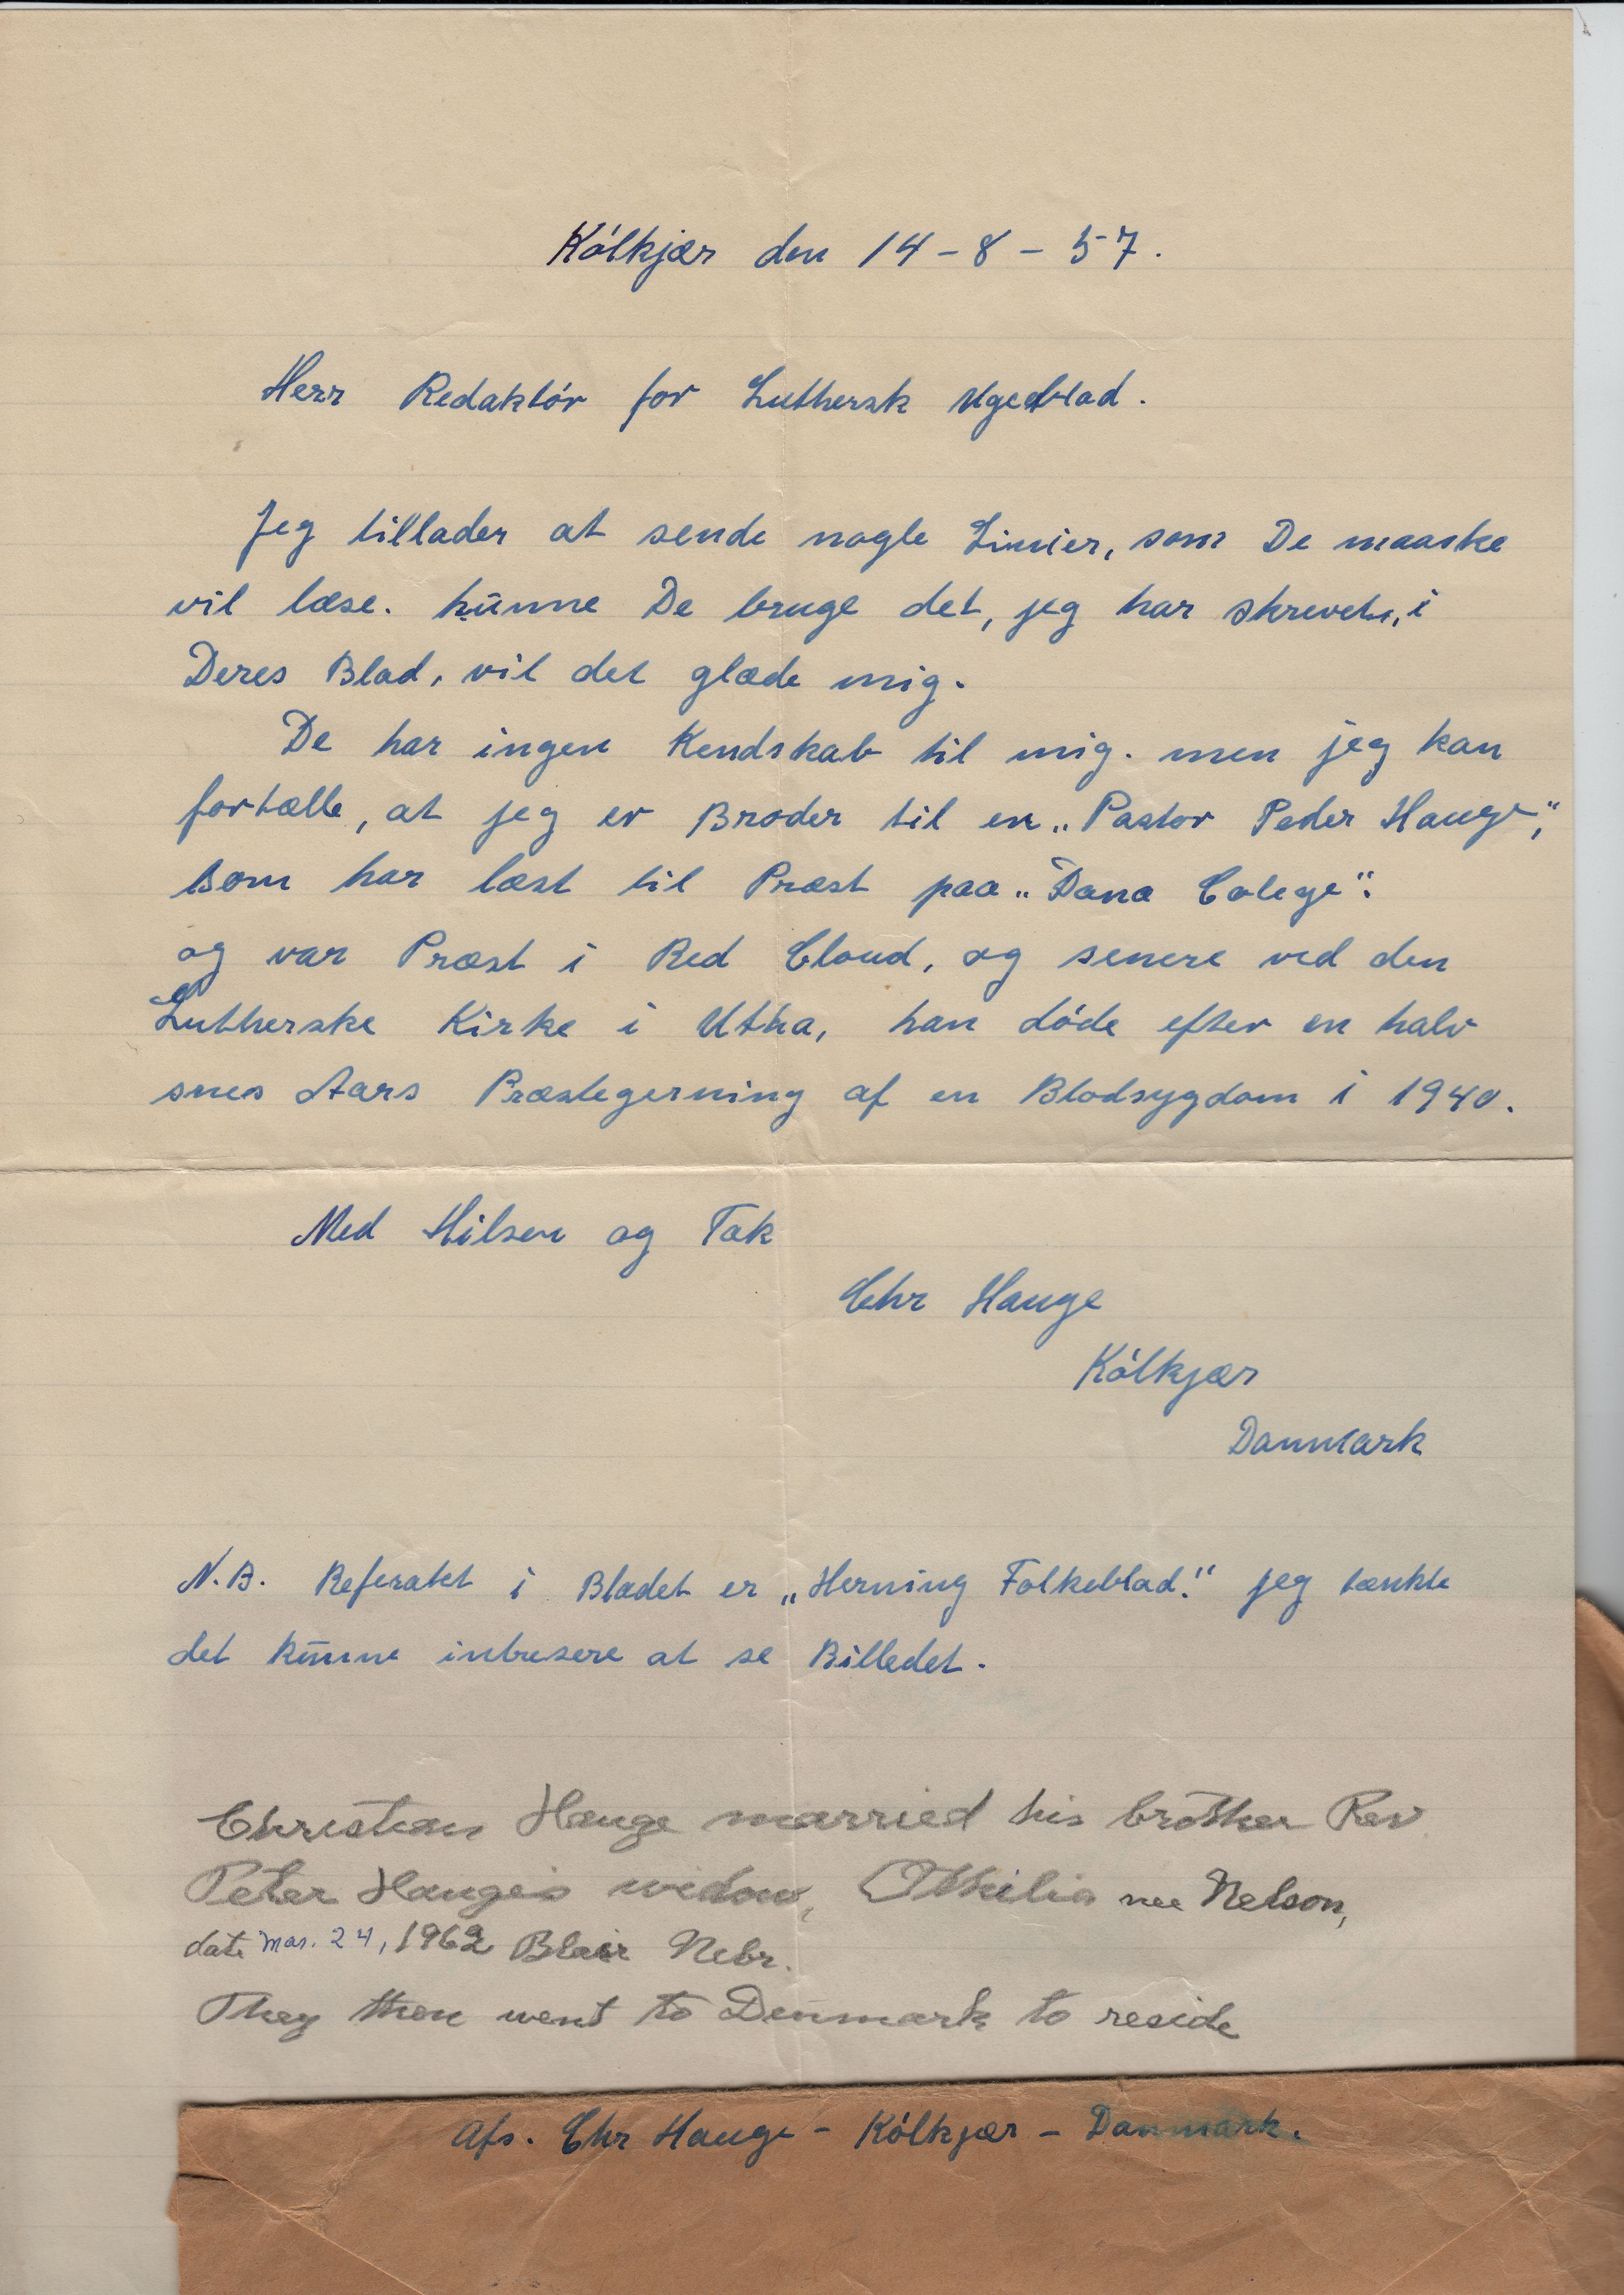 Kólkjær den 14-8-57.
Herr Redaktór for Luthersk Ugeblad.
Jeg tillader at sende nogle Linier, som De maaske
vil læse. kūnne De bruge det, jeg har skrevet, i
Deres Blad, vil det glæde mig.
De har ingen Kendskab til mig. men jeg kan
fortælle, at jeg er Broder til en „Pastor Peder Hauge",
som har læst til Præst paa „Dana Colege".
og var Præst i Red Cloud, og senere ved den
Lutherske Kirke i Utha, han dóde efter en halv
snes Aars Præstegerning af en Blodsygdom i 1940.
Med Hilsen og Tak
Chr Hauge
Kólkjær
Danmark
N.B. Referatet i Bladet er „Herning Folkeblad." jeg tænkte
det kūnne intresere at se Billedet.
Christian Hauge married his brother Rev
Peter Hauge's widow, Othilia nee Nelson,
date Mar. 24, 1962 Blair Nebr.
They then went to Denmark to reside
Afs. Chr Hauge - Kólkjær - Danmark.